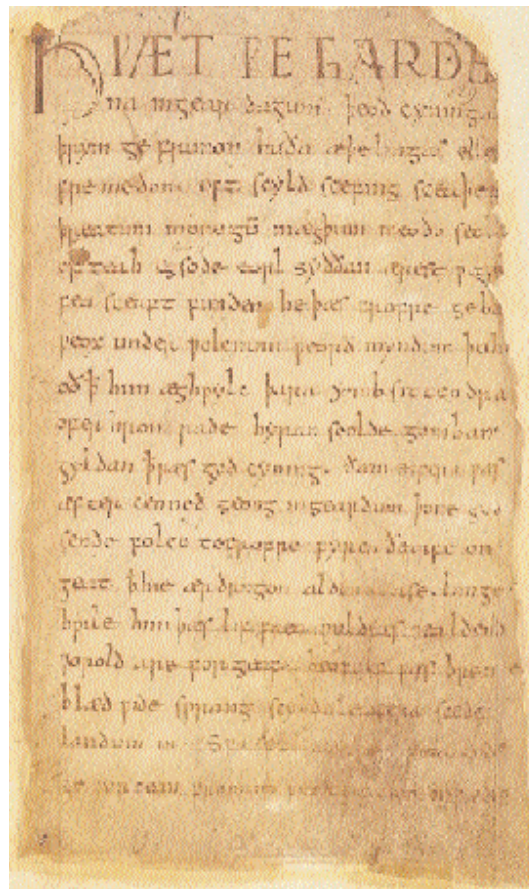 HǷÆT ǷE GARDE
na ingear dagum . þeod cyninga
þrym ge frunon huða æþelingas elle
fre medon . oft scyld scefing sceaþe
þreatum monegū mægþum meodo setl
of teah egsode eorl syððan ærest ƿear
fea sceaft funden he þæs frofre geba
ƿeox under ƿolcnum ƿeorð myndum þah
oð ꝥ him æghƿylc þara ymb sittendra
ofer hron rade hyran scolde gomban
gyldan ꝥ ƿæs god cyning . ðæm eafera ƿæs
æfter cenned geong in geardum þone god
sende folce tofrofre fyren ðearfe on
geat ꝥ hie ær drugon aldor ase . lange
hƿile him þæs lif frea ƿuldres ƿealdend
ƿorold are for geaf . beoƿulf ƿæs breme
blæd ƿide sprang scyldes eafera scede
landum in . Sƿa
fromum